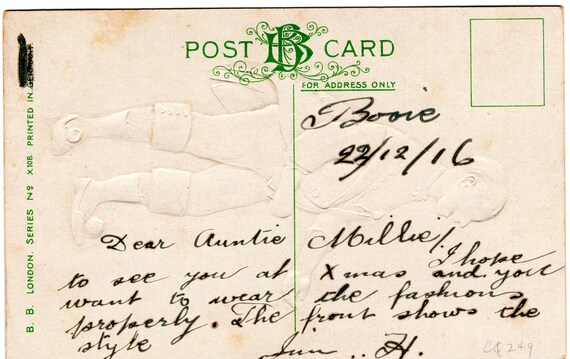 POST BB CARD
FOR ADDRESS ONLY
B. B. LONDON. SERIES No X108. PRINTED IN
Booie
22/12/16
Dear Auntie Millie/
I hope
to see you at Xmas and you
want to wear the fashions
properly. The front shows the
style
Jim .. H.
CQ249